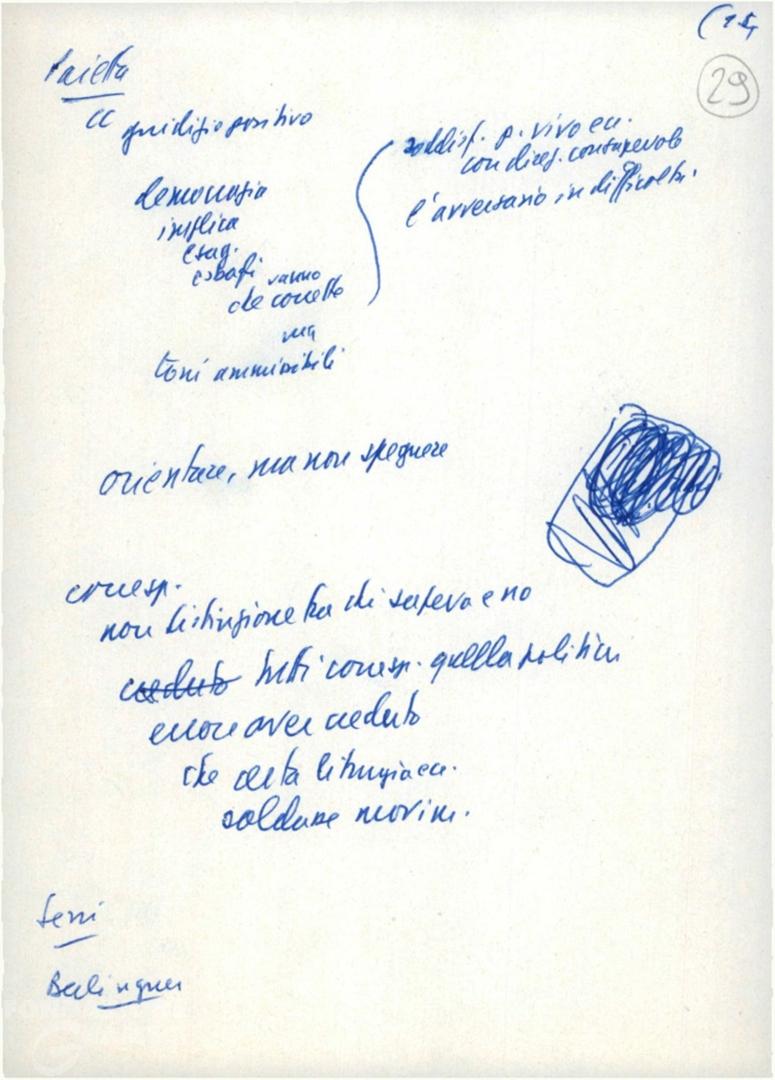 (15,
29
Paietta
CC giudizio positivo
democrazia
implica
esag.
vanno
che corrette
ma
toni ammissibili
soddisf. p. vivo ecc.
con disc. consapevole
l'avversario in difficoltà.
orientare, ma non spegnere
corresp.
non distinzione tra chi sapeva e no
creduto tutti corresp. quella politica
errore aver creduto
che certa liturgia ecc.
saldasse movim.
Serri
Berlinguer